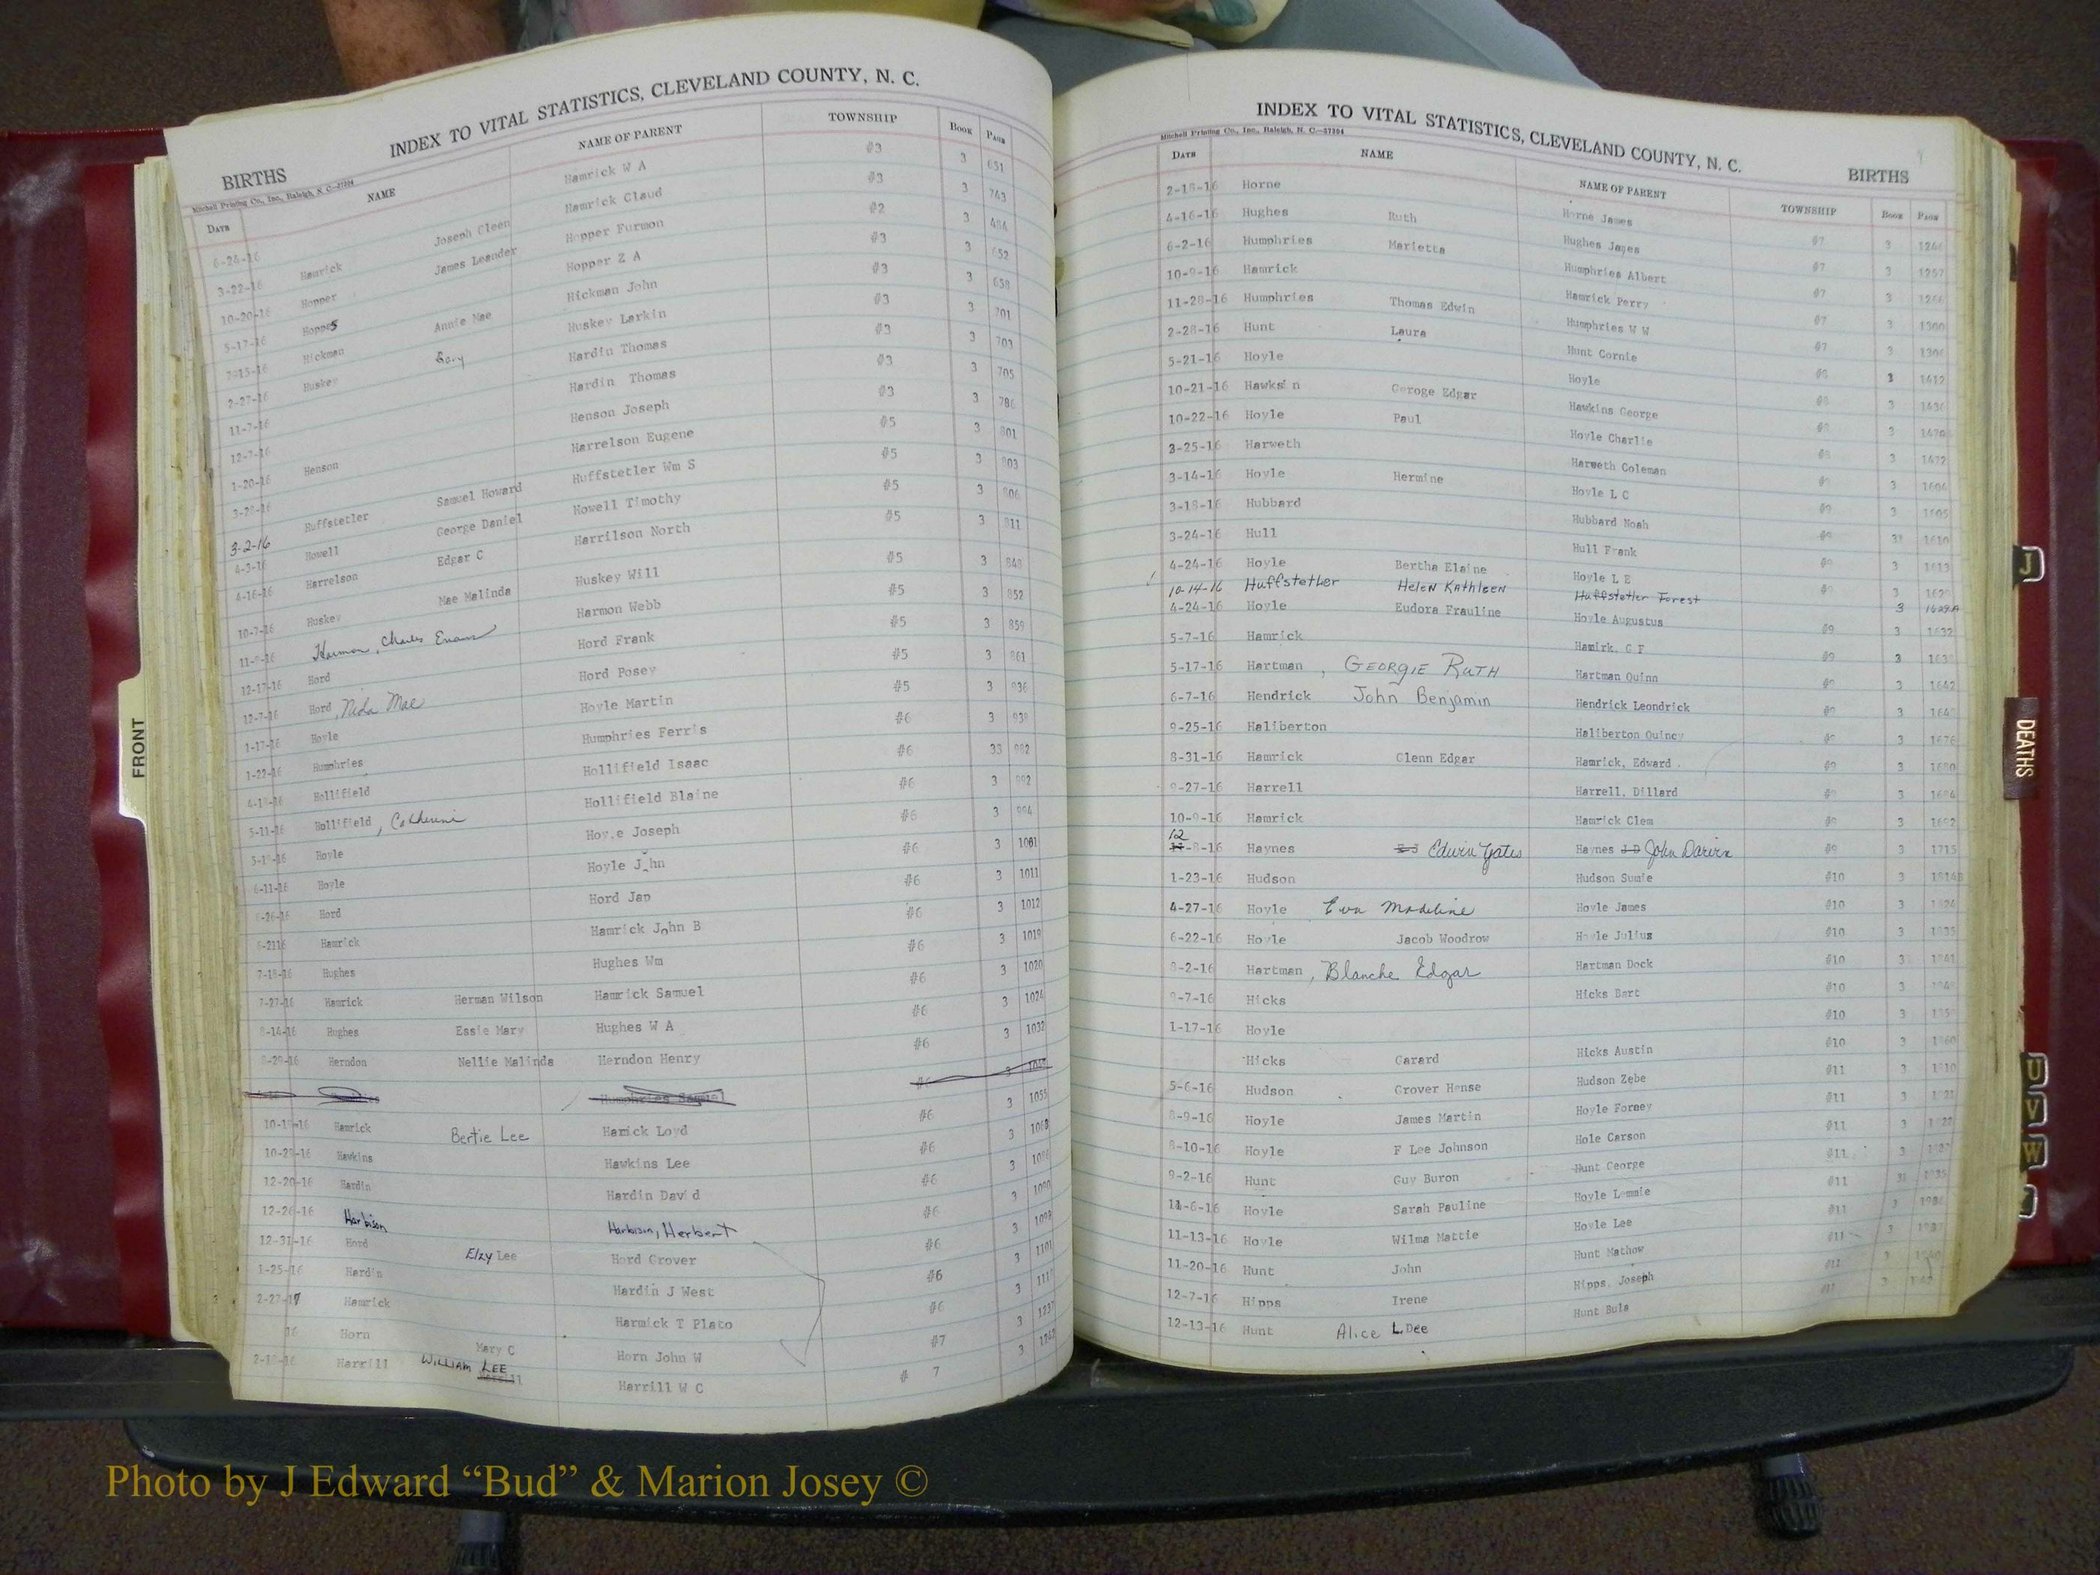 INDEX TO VITAL STATISTICS, CLEVELAND COUNTY, N. C.
BIRTHS
Mitchell Printing Co., Inc., Raleigh, N. C.—27204
DATE NAME NAME OF PARENT TOWNSHIP BOOK PAGE
6-24-16 Hamrick Joseph Cleen Hamrick W A #3 3 651
3-22-16 Hopper James Leander Hamrick Claud #3 3 743
10-20-16 Hopper Hopper Furmon #2 3
5-17-16 Hickman Annie Mae Hopper Z A #3 3 652
7-15-16 Huskey Hickman John #3 3 658
2-27-16 Huskey Larkin #3 3 701
11-7-16 Hardin Thomas #3 3 703
12-7-16 Hardin Thomas #3 3 705
1-20-16 Henson Henson Joseph #3 3 786
3-28-16 Harrelson Eugene #5 3 801
3-2-16 Huffstetler Samuel Howard Huffstetler Wm S #5 3 803
4-3-16 Howell George Daniel Howell Timothy #5 3 806
4-16-16 Harrelson Edgar C Harrilson North #5 3 811
10-7-16 Huskey Mae Malinda Huskey Will #5 3 848
11-8-16 Harmon, Charles Evans Harmon Webb #5 3 852
12-17-16 Hord Hord Frank #5 3 859
12-7-16 Hord, Nida Mae Hord Posey #5 3 861
1-17-16 Hoyle Hoyle Martin #5 3 936
1-22-16 Humphries Humphries Ferris #6 3 939
4-18-16 Hollifield Hollifield Isaac #6 33 982
5-11-16 Hollifield, Catherine Hollifield Blaine #6 3 992
Hoyle Hoyle Joseph #6 3 994
6-11-16 Hoyle Hoyle John #6 3 1001
6-26-16 Hord Hord Jap #6 3 1011
6-2116 Hamrick Hamrick John B #6 3 1012
7-18-16 Hughes Hughes Wm #6 3 1019
7-27-16 Hamrick Herman Wilson Hamrick Samuel #6 3 1020
8-14-16 Hughes Essie Mary Hughes W A #6 3 1024
8-29-16 Herndon Nellie Malinda Herndon Henry #6 3 1032
Humphries Samuel #6 3
10-19-16 Hamrick Bertie Lee Hamick Loyd #6 3 1055
10-29-16 Hawkins Hawkins Lee #6 3 1068
12-20-16 Hardin Hardin David #6 3
12-26-16 Harbison Harbison, Herbert #6 3 1090
12-31-16 Hord Elzy Lee Hord Grover #6 3 1098
1-25-16 Hardin Hardin J West #6 3 1101
2-27-17 Hamrick Harmick T Plato #6 3
16 Horn Mary C Horn John W #7 3 1237
2-18-16 Harrill WILLIAM LEE Harrill W C # 7 3 1242
FRONT
INDEX TO VITAL STATISTICS, CLEVELAND COUNTY, N. C.
Mitchell Printing Co., Inc., Raleigh, N. C.—27204
BIRTHS
DATE NAME NAME OF PARENT TOWNSHIP BOOK PAGE
2-18-16 Horne Horne James #7 3 1246
4-16-16 Hughes Ruth Hughes James #7 3 1257
6-2-16 Humphries Marietta Humphries Albert #7 3 1266
10-9-16 Hamrick Hamrick Perry #7 3 1300
11-28-16 Humphries Thomas Edwin Humphries W W #7 3 1306
2-28-16 Hunt Laura Hunt Cornie #8 3 1412
5-21-16 Hoyle Hoyle #8 3 1436
10-21-16 Hawksin Geroge Edgar Hawkins George #8 3
10-22-16 Hoyle Paul Hoyle Charlie #8 3 1472
3-25-16 Harweth Harweth Coleman #9 3 1604
3-14-16 Hoyle Hermine Hoyle L C #9 3 1605
3-18-16 Hubbard Hubbard Noah #9 3 1610
3-24-16 Hull Hull Frank #9 3 1613
4-24-16 Hoyle Bertha Elaine Hoyle L E #9 3 1629
10-14-16 Huffstetler Helen Kathleen Huffstetler Forest 3 1629A
4-24-16 Hoyle Eudora Frauline Hoyle Augustus #9 3 1632
5-7-16 Hamrick Hamirk. C F #9 3
5-17-16 Hartman, GEORGIE RUTH Hartman Quinn #9 3 1642
6-7-16 Hendrick John Benjamin Hendrick Leondrick #9 3 1649
9-25-16 Haliberton Haliberton Quincy #9 3 1676
8-31-16 Hamrick Glenn Edgar Hamrick, Edward. #9 3 1680
9-27-16 Harrell Harrell. Dillard #9 3 1684
10-9-16 Hamrick Hamrick Clem #9 3 1692
12
-8-16 Haynes Edwin Yates Haynes J D John Darwin #9 3 1715
1-23-16 Hudson Hudson Sumie #10 3
4-27-16 Hoyle Eva Madeline Hoyle James #10 3 1824
6-22-16 Hoyle Jacob Woodrow Hoyle Julius #10 3 1835
8-2-16 Hartman, Blanche Edgar Hartman Dock #10 3 1841
9-7-16 Hicks Hicks Bart #10 3
1-17-16 Hoyle #10 3
Hicks Garard Hicks Austin #10 3 1860
5-6-16 Hudson Grover Hense Hudson Zebe #11 3 1910
8-9-16 Hoyle James Martin Hoyle Forney #11 3 1921
8-10-16 Hoyle F Lee Johnson Hole Carson #11 3 1922
9-2-16 Hunt Guy Buron Hunt George #11 3
11-6-16 Hoyle Sarah Pauline Hoyle Lemmie #11 3
11-13-16 Hoyle Wilma Mattie Hoyle Lee #11 3
11-20-16 Hunt John Hunt Mathow #11 3
12-7-16 Hipps Irene Hipps. Joseph #11 3
12-13-16 Hunt Alice L Dee Hunt Bula #11 3
J
DEATHS
U
V
W
Photo by J Edward “Bud” & Marion Josey ©